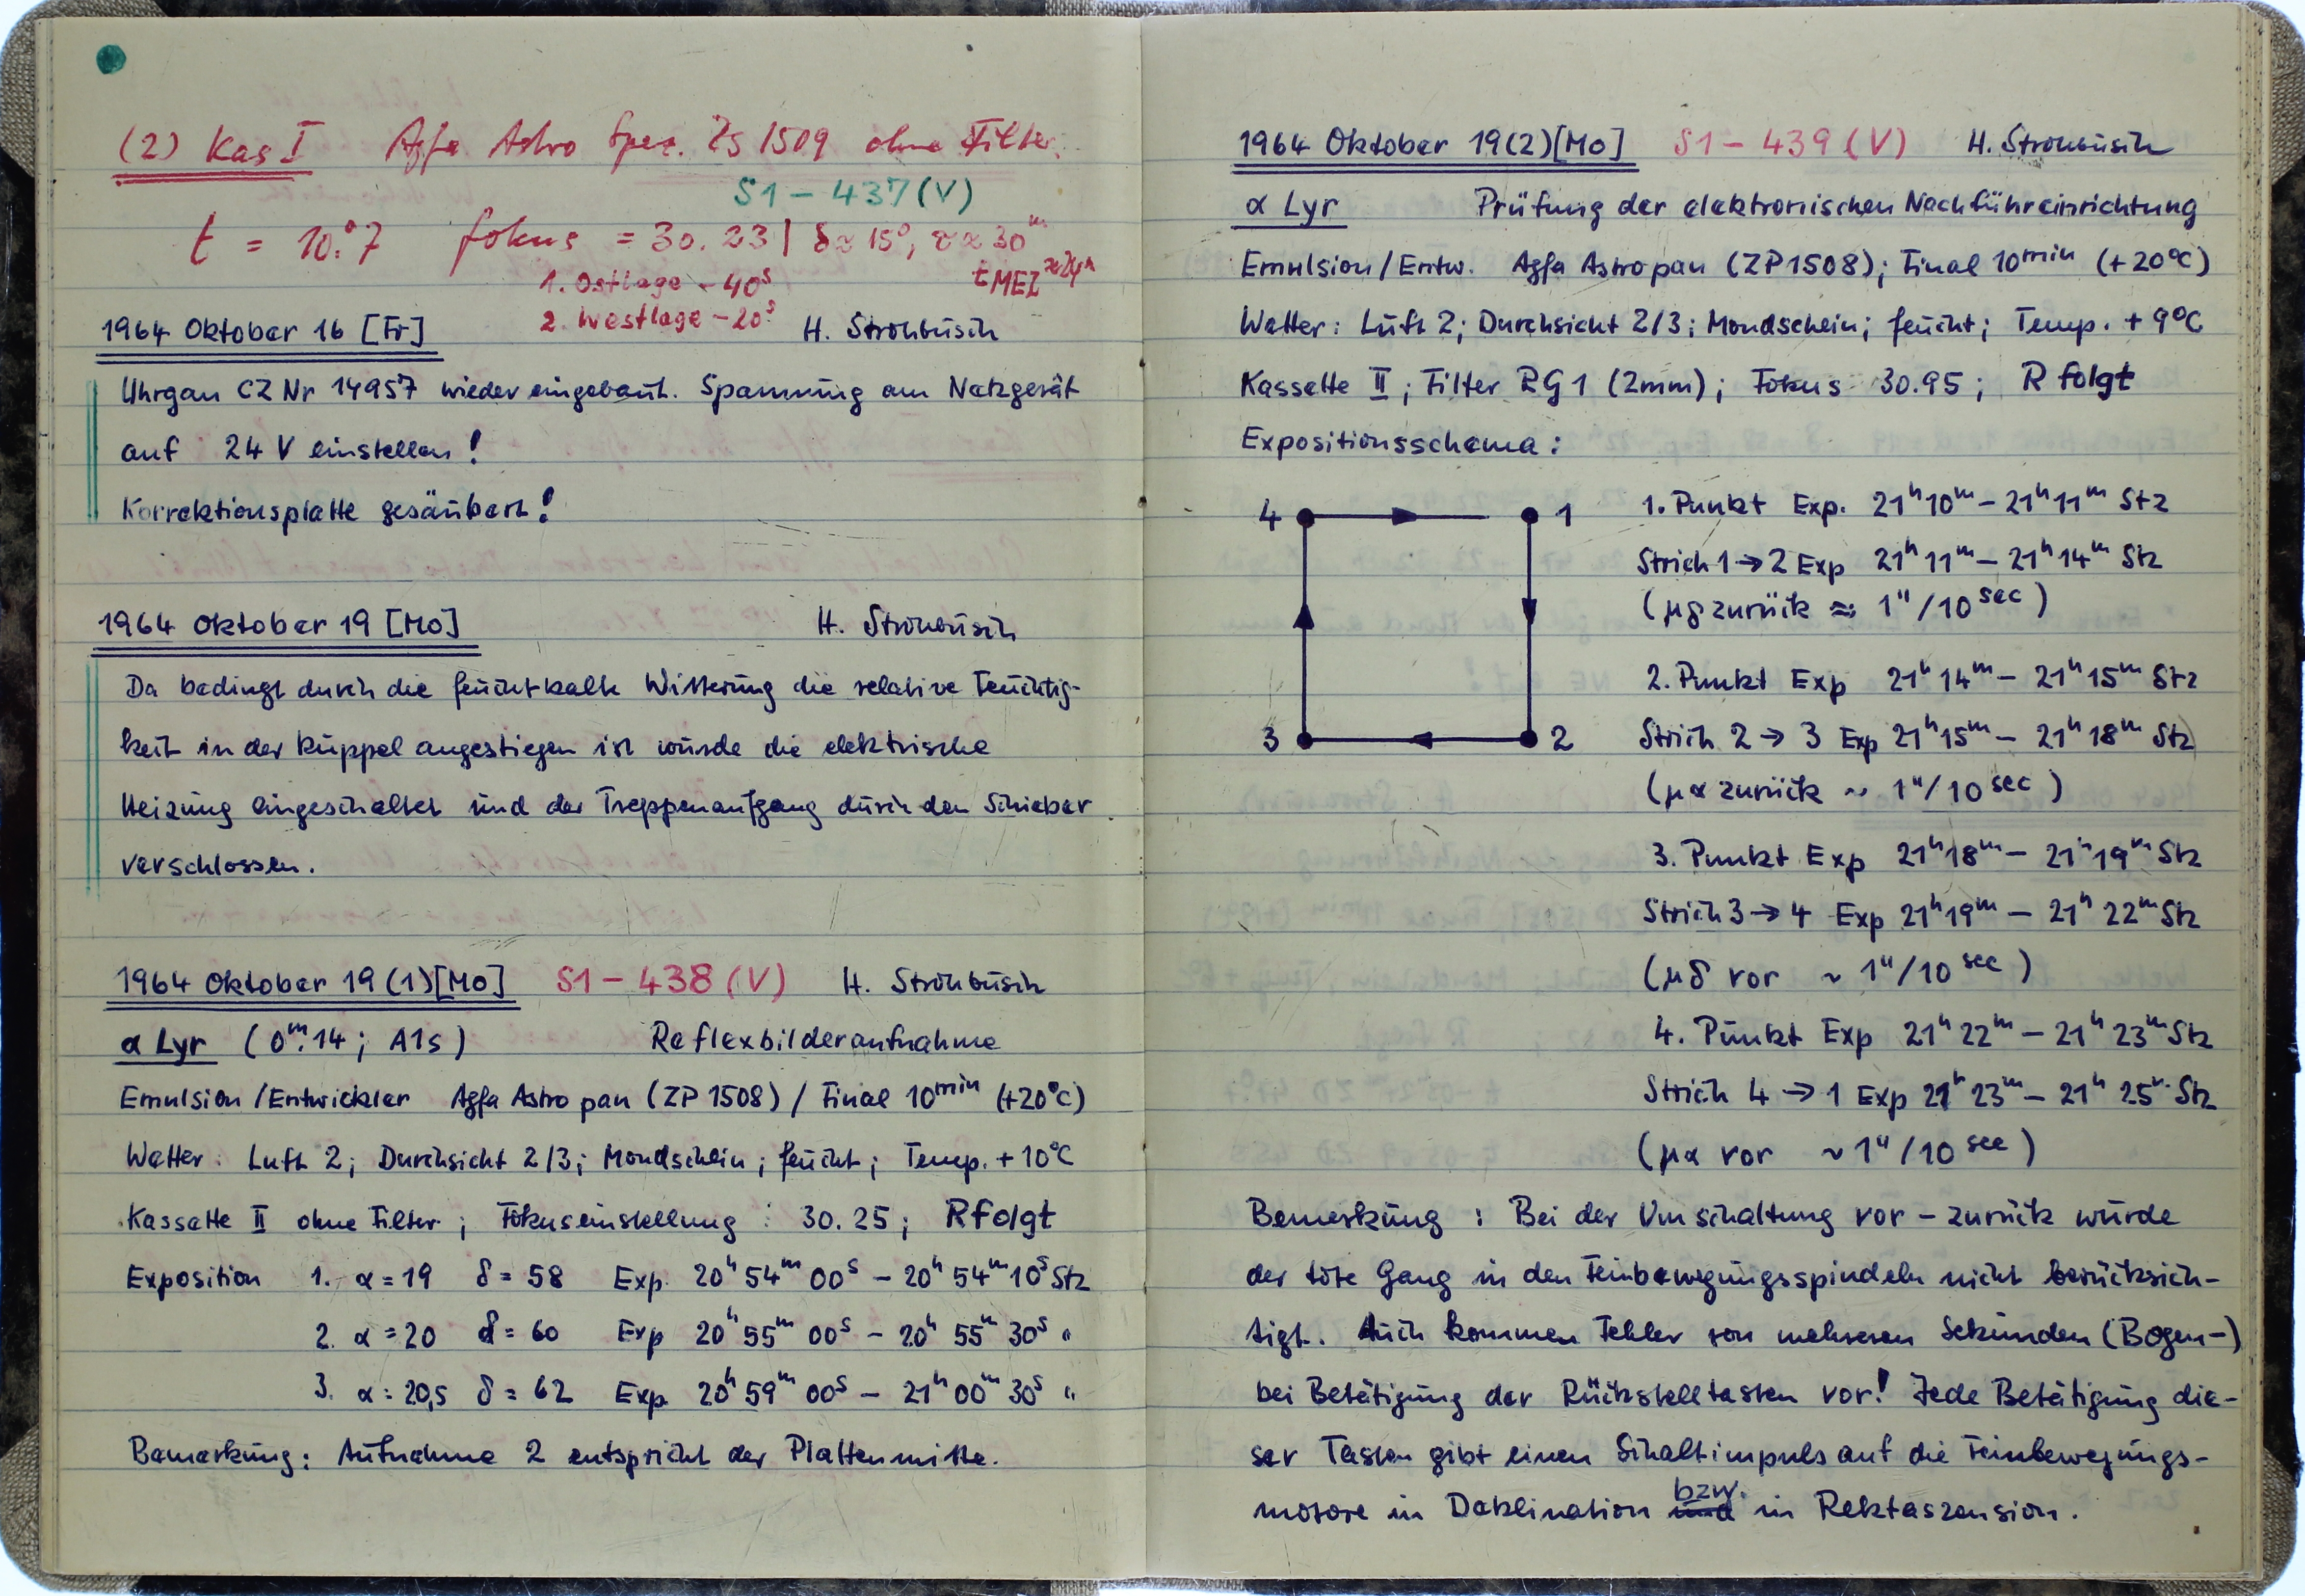 (2) Kas I Agfa Astro Spez. ZS 1509 ohne Filter.
S1 – 437 (V)
t = 10.°7 Fokus = 30.23 | δ ≈ 15°, τ ≈ 30ᵐ
1. Ostlage – 40ˢ tMEZ ≈24ʰ
2. Westlage – 20ˢ
1964 Oktober 16 [Fr] H. Strohbusch
Uhrgan CZ Nr 14957 wieder eingebaut. Spannung am Netzgerät
auf 24 V einstellen!
Korrektionsplatte gesäubert!
1964 Oktober 19 [Mo] H. Strohbusch
Da bedingt durch die feuchtkalte Witterung die relative Feuchtig-
keit in der Kuppel angestiegen ist wurde die elektrische
Heizung eingeschaltet und der Treppenaufgang durch den Schieber
verschlossen.
1964 Oktober 19 (1) [Mo] S1 – 438 (V) H. Strohbusch
α Lyr (0ᵐ.14; A1s) Reflexbilderaufnahme
Emulsion/Entwickler Agfa Astro pan (ZP 1508) / Final 10min (+20°C)
Wetter: Luft 2; Durchsicht 2/3; Mondschein; feucht; Temp. +10°C
Kassette II ohne Filter; Fokuseinstellung: 30.25; R folgt
Exposition 1. α = 19 δ = 58 Exp. 20ʰ 54ᵐ 00ˢ – 20ʰ 54ᵐ 10ˢ Stz
2. α = 20 δ = 60 Exp 20ʰ 55ᵐ 00ˢ – 20ʰ 55ᵐ 30ˢ "
3. α = 20,5 δ = 62 Exp. 20ʰ 59ᵐ 00ˢ – 21ʰ 00ᵐ 30ˢ "
Bemerkung: Aufnahme 2 entspricht der Plattenmitte.
1964 Oktober 19(2)[Mo] S1 – 439 (V) H. Strohbusch
α Lyr Prüfung der elektronischen Nachführeinrichtung
Emulsion/Entw. Agfa Astropan (ZP1508); Final 10min (+20°C)
Wetter: Luft 2; Durchsicht 2/3; Mondschein; feucht; Temp. +9°C
Kassette II; Filter RG1 (2mm); Fokus 30.95; R folgt
Expositionsschema:
4 1
3 2
1. Punkt Exp. 21ʰ10ᵐ – 21ʰ11ᵐ Stz
Strich 1→2 Exp 21ʰ11ᵐ – 21ʰ14ᵐ Stz
(μδ zurück ≈ 1"/10 sec)
2. Punkt Exp 21ʰ14ᵐ – 21ʰ15ᵐ Stz
Strich 2→3 Exp 21ʰ15ᵐ – 21ʰ18ᵐ Stz
(μα zurück ~ 1"/10 sec)
3. Punkt Exp 21ʰ18ᵐ – 21ʰ19ᵐ Stz
Strich 3→4 Exp 21ʰ19ᵐ – 21ʰ22ᵐ Stz
(μδ vor ~ 1"/10 sec)
4. Punkt Exp 21ʰ22ᵐ – 21ʰ23ᵐ Stz
Strich 4→1 Exp 21ʰ23ᵐ – 21ʰ25ᵐ Stz
(μα vor ~ 1"/10 sec)
Bemerkung: Bei der Umschaltung vor – zurück wurde
der tote Gang in den Feinbewegungsspindeln nicht berücksich-
tigt. Auch kommen Fehler von mehreren Sekunden (Bogen-)
bei Betätigung der Rückstelltasten vor! Jede Betätigung die-
ser Tasten gibt einen Schaltimpuls auf die Feinbewegungs-
motore in Deklination bzw. in Rektaszension.